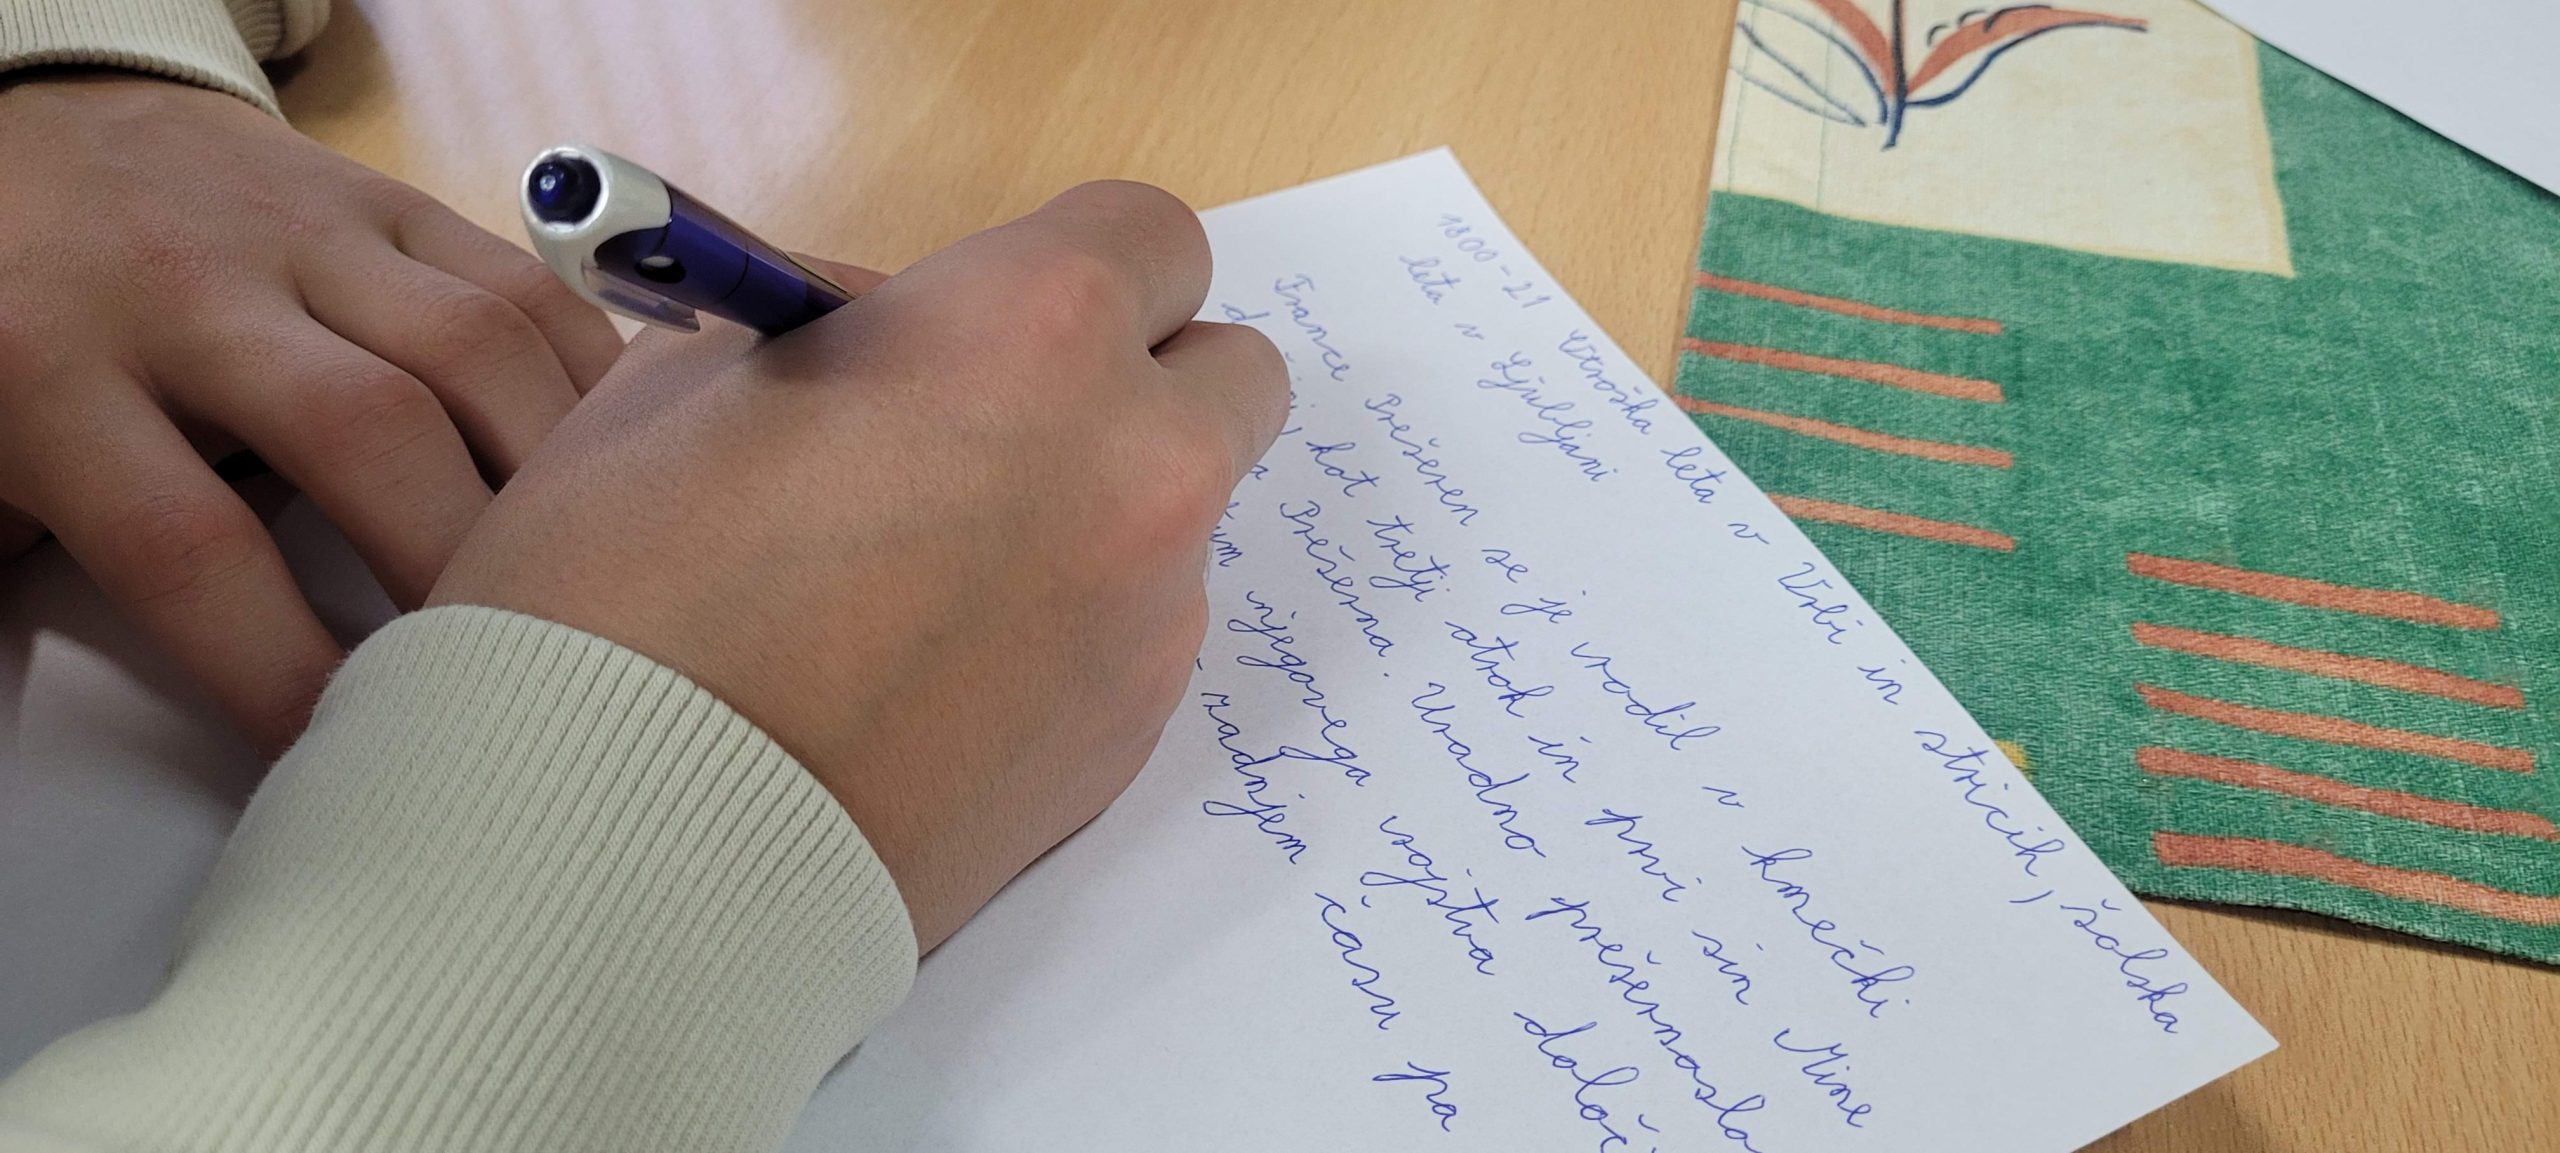 1800-21 Otroška leta v Vrbi in stricih, šolska
leta v Ljubljani
France Prešeren se je rodil v kmečki
kot tretji otrok in prvi sin Mine
Prešerna. Uradno prešernoslo
njegovega rojstva določ
zadnjem času pa